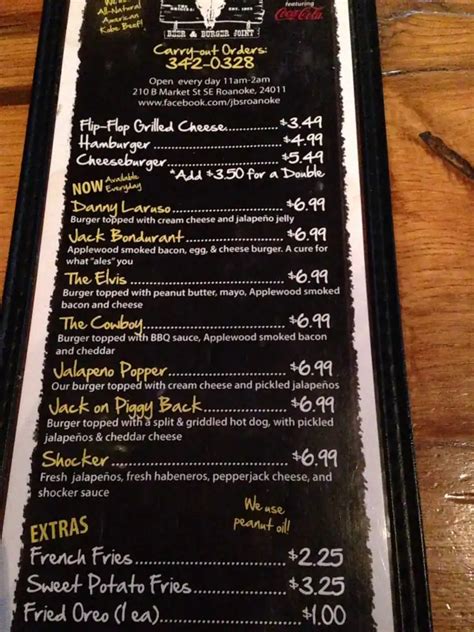 We're
All-Natural
American
Kobe Beef!
EST. 1983
BEER & BURGER JOINT
featuring
Coca-Cola
Carry-out Orders:
342-0328
Open every day 11am-2am
210 B Market St SE Roanoke, 24011
www.facebook.com/jbsroanoke
Flip-Flop Grilled Cheese $3.49
Hamburger $4.99
Cheeseburger $5.49
*Add $3.50 for a Double
NOW Available Everyday
Danny Laruso $6.99
Burger topped with cream cheese and jalapeño jelly
Jack Bondurant $6.99
Applewood smoked bacon, egg, & cheese burger. A cure for
what "ales" you
The Elvis $6.99
Burger topped with peanut butter, mayo, Applewood smoked
bacon and cheese
The Cowboy $6.99
Burger topped with BBQ sauce, Applewood smoked bacon
and cheddar
Jalapeno Popper $6.99
Our burger topped with cream cheese and pickled jalapeños
Jack on Piggy Back $6.99
Burger topped with a split & griddled hot dog, with pickled
jalapeños & cheddar cheese
Shocker $6.99
Fresh jalapeños, fresh habeneros, pepperjack cheese, and
shocker sauce
We use
peanut oil!
EXTRAS
French Fries $2.25
Sweet Potato Fries $3.25
Fried Oreo (1 ea) $1.00